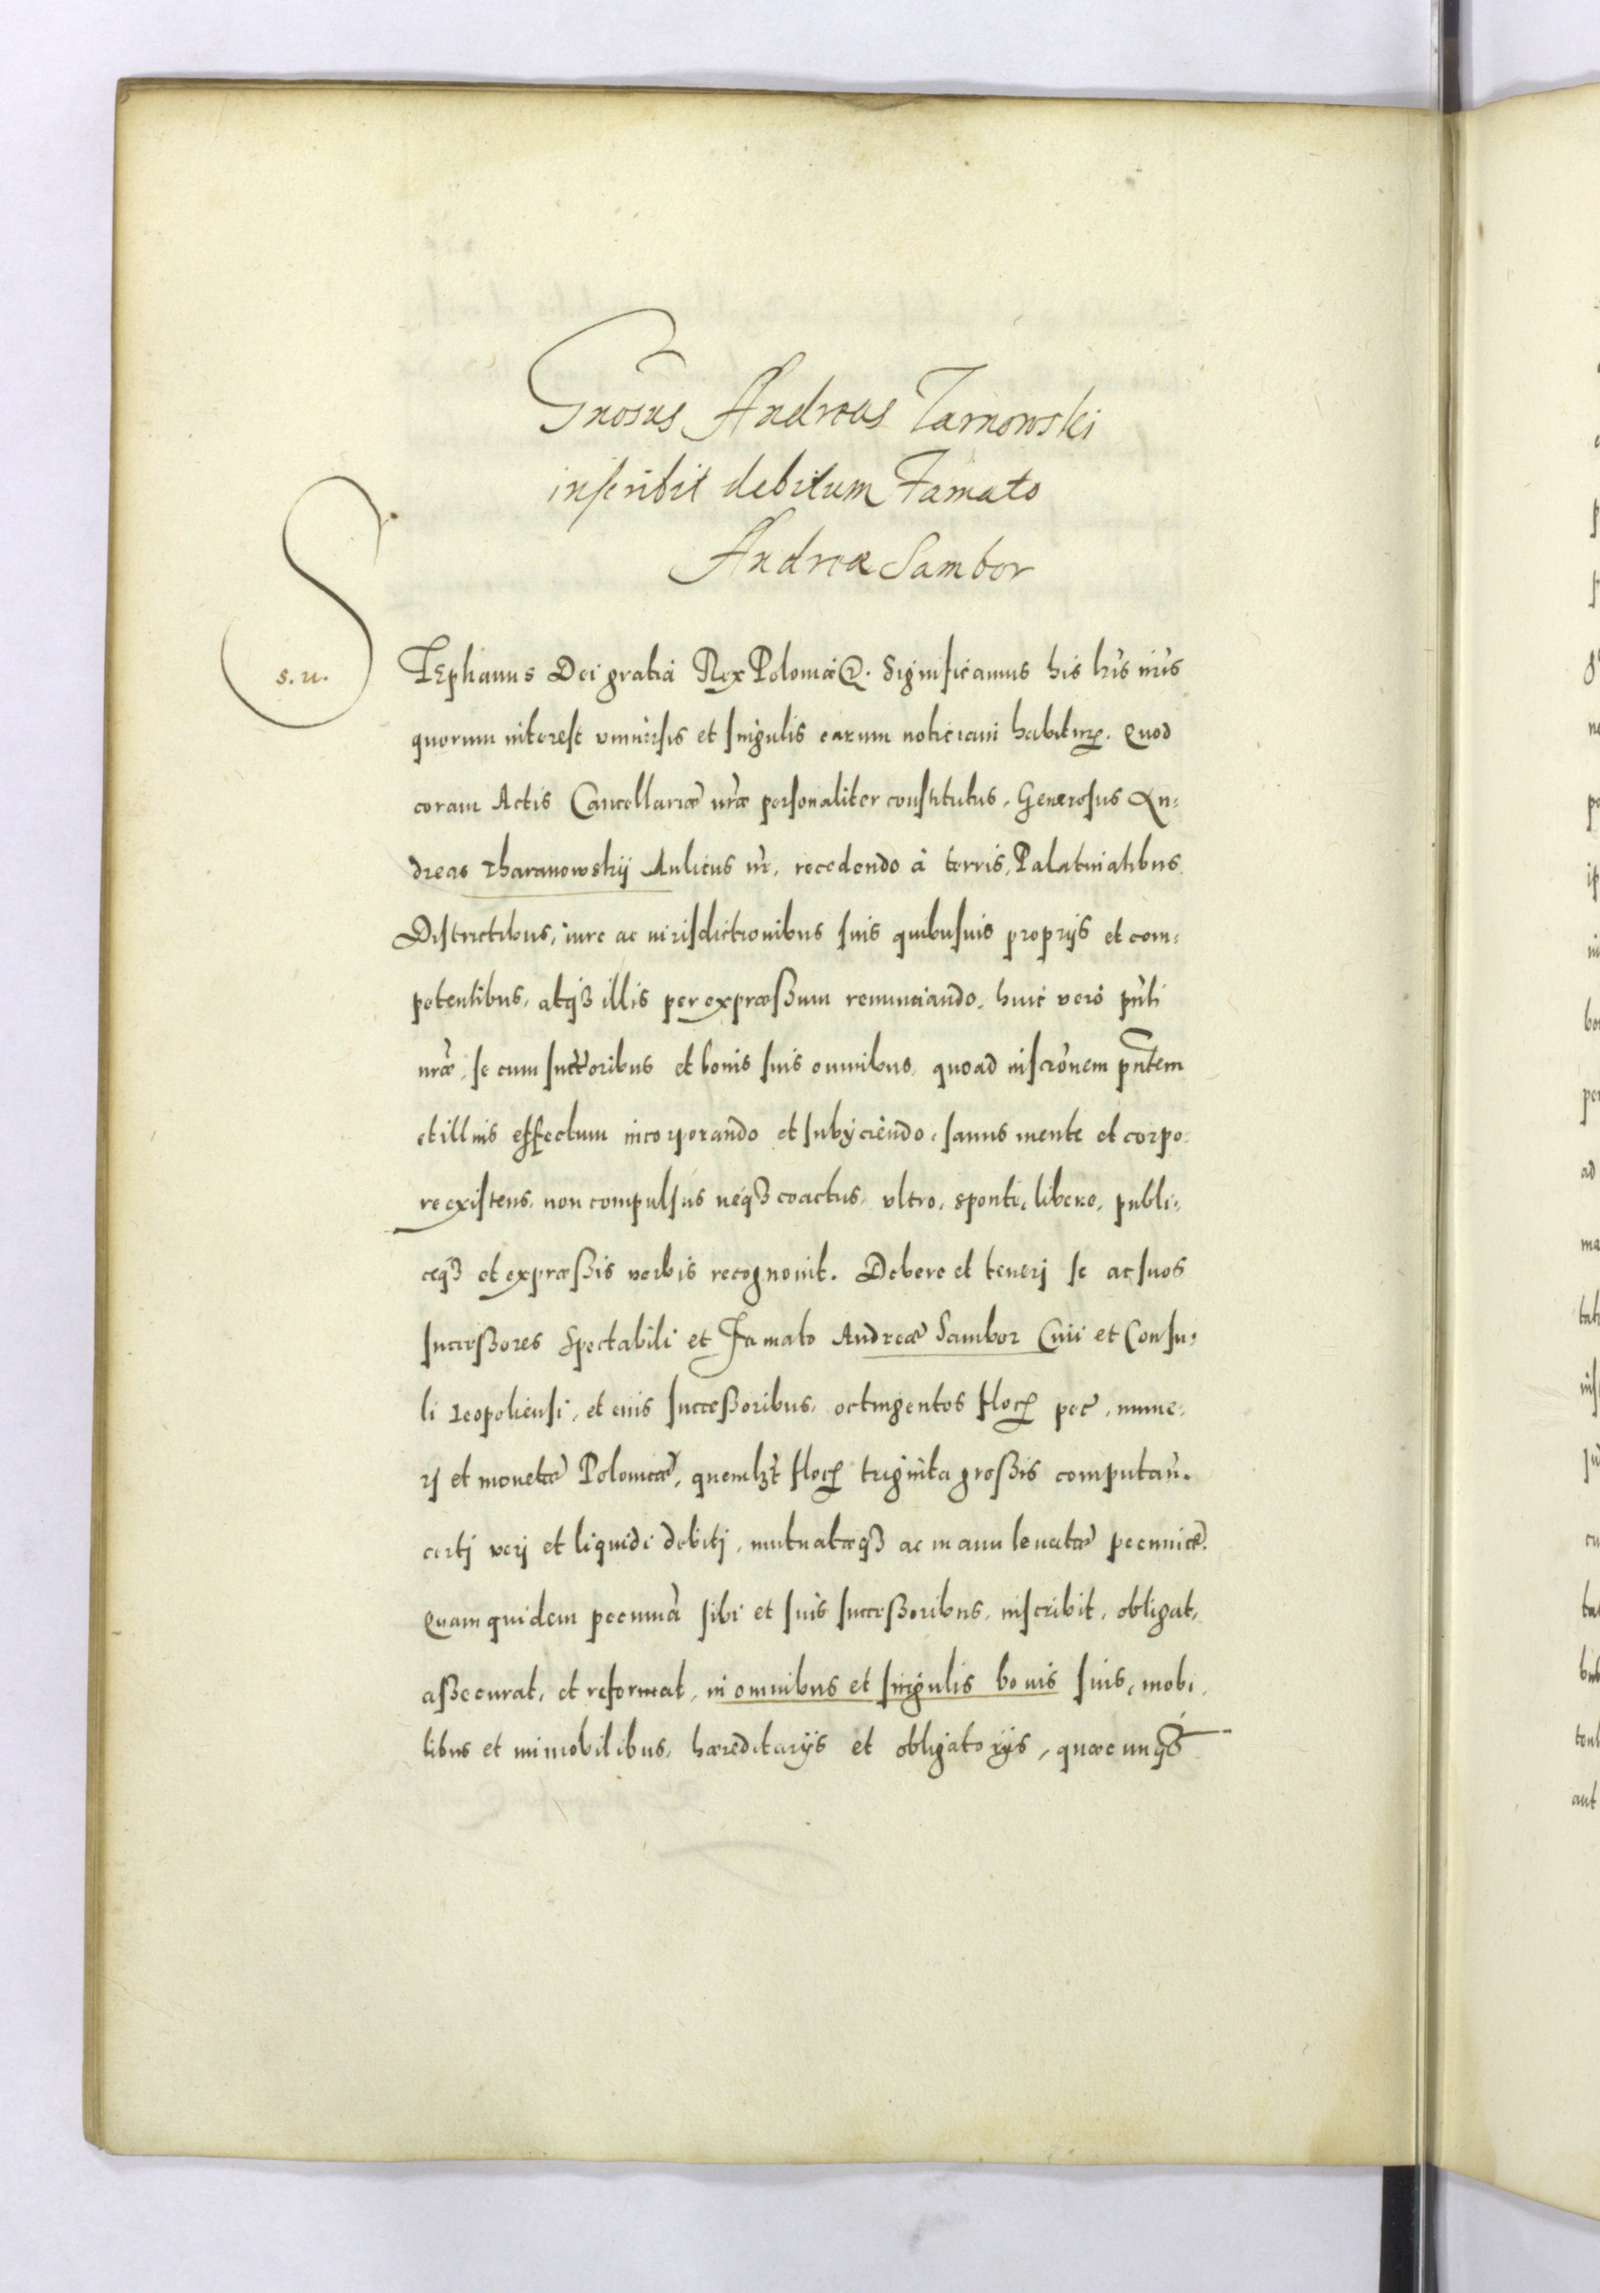 Gnosus Andreas Tarnowski
inscribit debitum Famato
Andreæ Sambor
s. u.
STEphanus Dei gratia Rex Poloniæ &. Significamus his lris nris
quorum interest vniuersis et singulis earum noticiam habituris. Quod
coram Actis Cancellariæ nræ personaliter constitutus, Generosus An-
dreas Tharanowskÿ Aulicus nr, recedendo à terris, Palatinatibus
Districtibus, iure ac iurisdictionibus suis quibusuis proprijs et com-
petentibus, atqз illis per expræssum renunciando, huic vero pnti
nræ, se cum succ̃oribus et bonis suis omnibus, quoad inscr̃onem pn̄tem
et illius effectum incorporando et subÿciendo, sanus mente et corpo-
re existens, non compulsus neqз coactus, vltro, sponte, libere, publi-
ceqз et expræssis verbis recognouit. Debere et tenerj se ac suos
successores Spectabili et Famato Andreæ Sambor Ciui et Consu-
li Leopoliensi, et eius successoribus, octingentos floꝝ pec, nume-
rj et monetæ Poloniæ, quemlзt floꝝ triginta grossis computan.
certj verj et liquidi debitj, mutuatæqз ac manu leuatæ pecuniæ.
Quam quidem pecuniã sibi et suis successoribus, inscribit, obligat,
assecurat, et reformat, in omnibus et singulis bonis suis, mobi-
libus et immobilibus, hæreditarijs et obligatorijs, quæcunqз